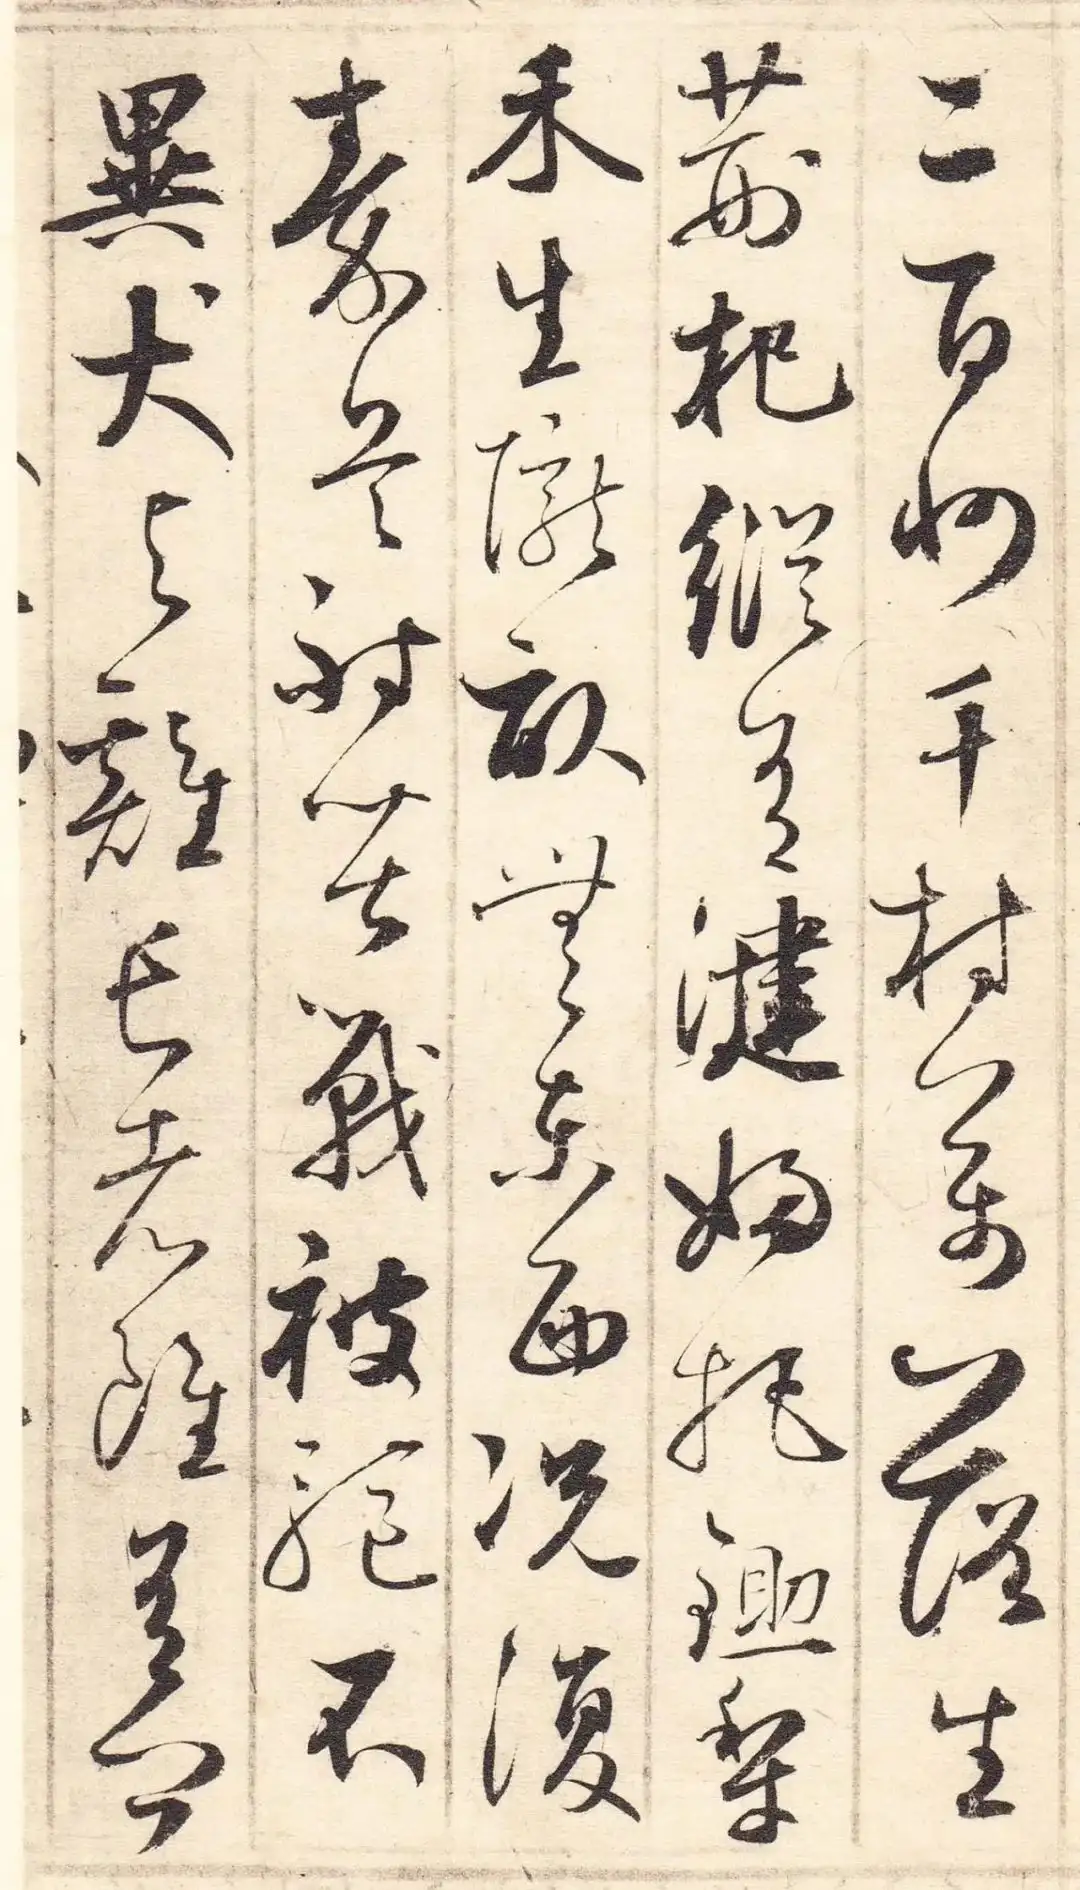 二百州千村萬落生
荊杞縱有健婦把鋤犁
禾生隴畝無東西況復
秦兵耐苦戰被驅不
異犬与雞長老雖有問